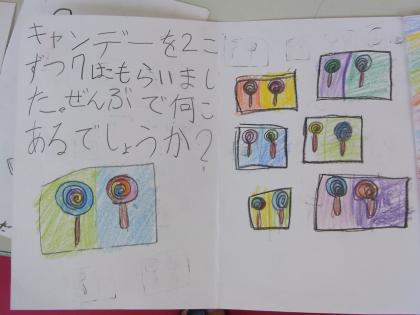 キャンデーを2こ
ずつ7はもらいまし
た。ぜんぶで何こ
あるでしょうか？